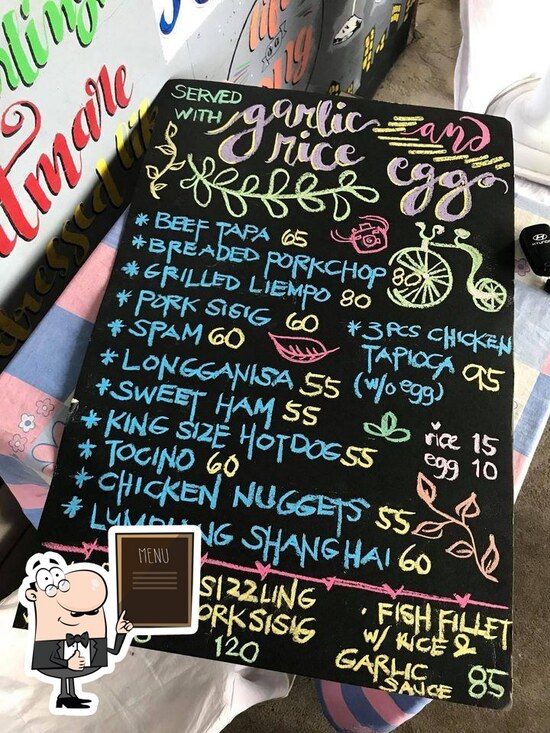 SERVED
WITH
garlic
rice
and
eggs
* BEEF TAPA 65
* BREADED PORKCHOP 80
* GRILLED LIEMPO 80
* PORK SISIG 60
* SPAM 60
* LONGGANISA 55
* SWEET HAM 55
* KING SIZE HOTDOG 55
* TOCINO 60
* CHICKEN NUGGETS 55
SHANGHAI 60
* 3 PCS CHICKEN
TAPIOCA 95
(w/o egg)
rice 15
egg 10
SIZZLING
120
• FISH FILLET
W/ RICE &
GARLIC
SAUCE 85
MENU
HYUNDAI